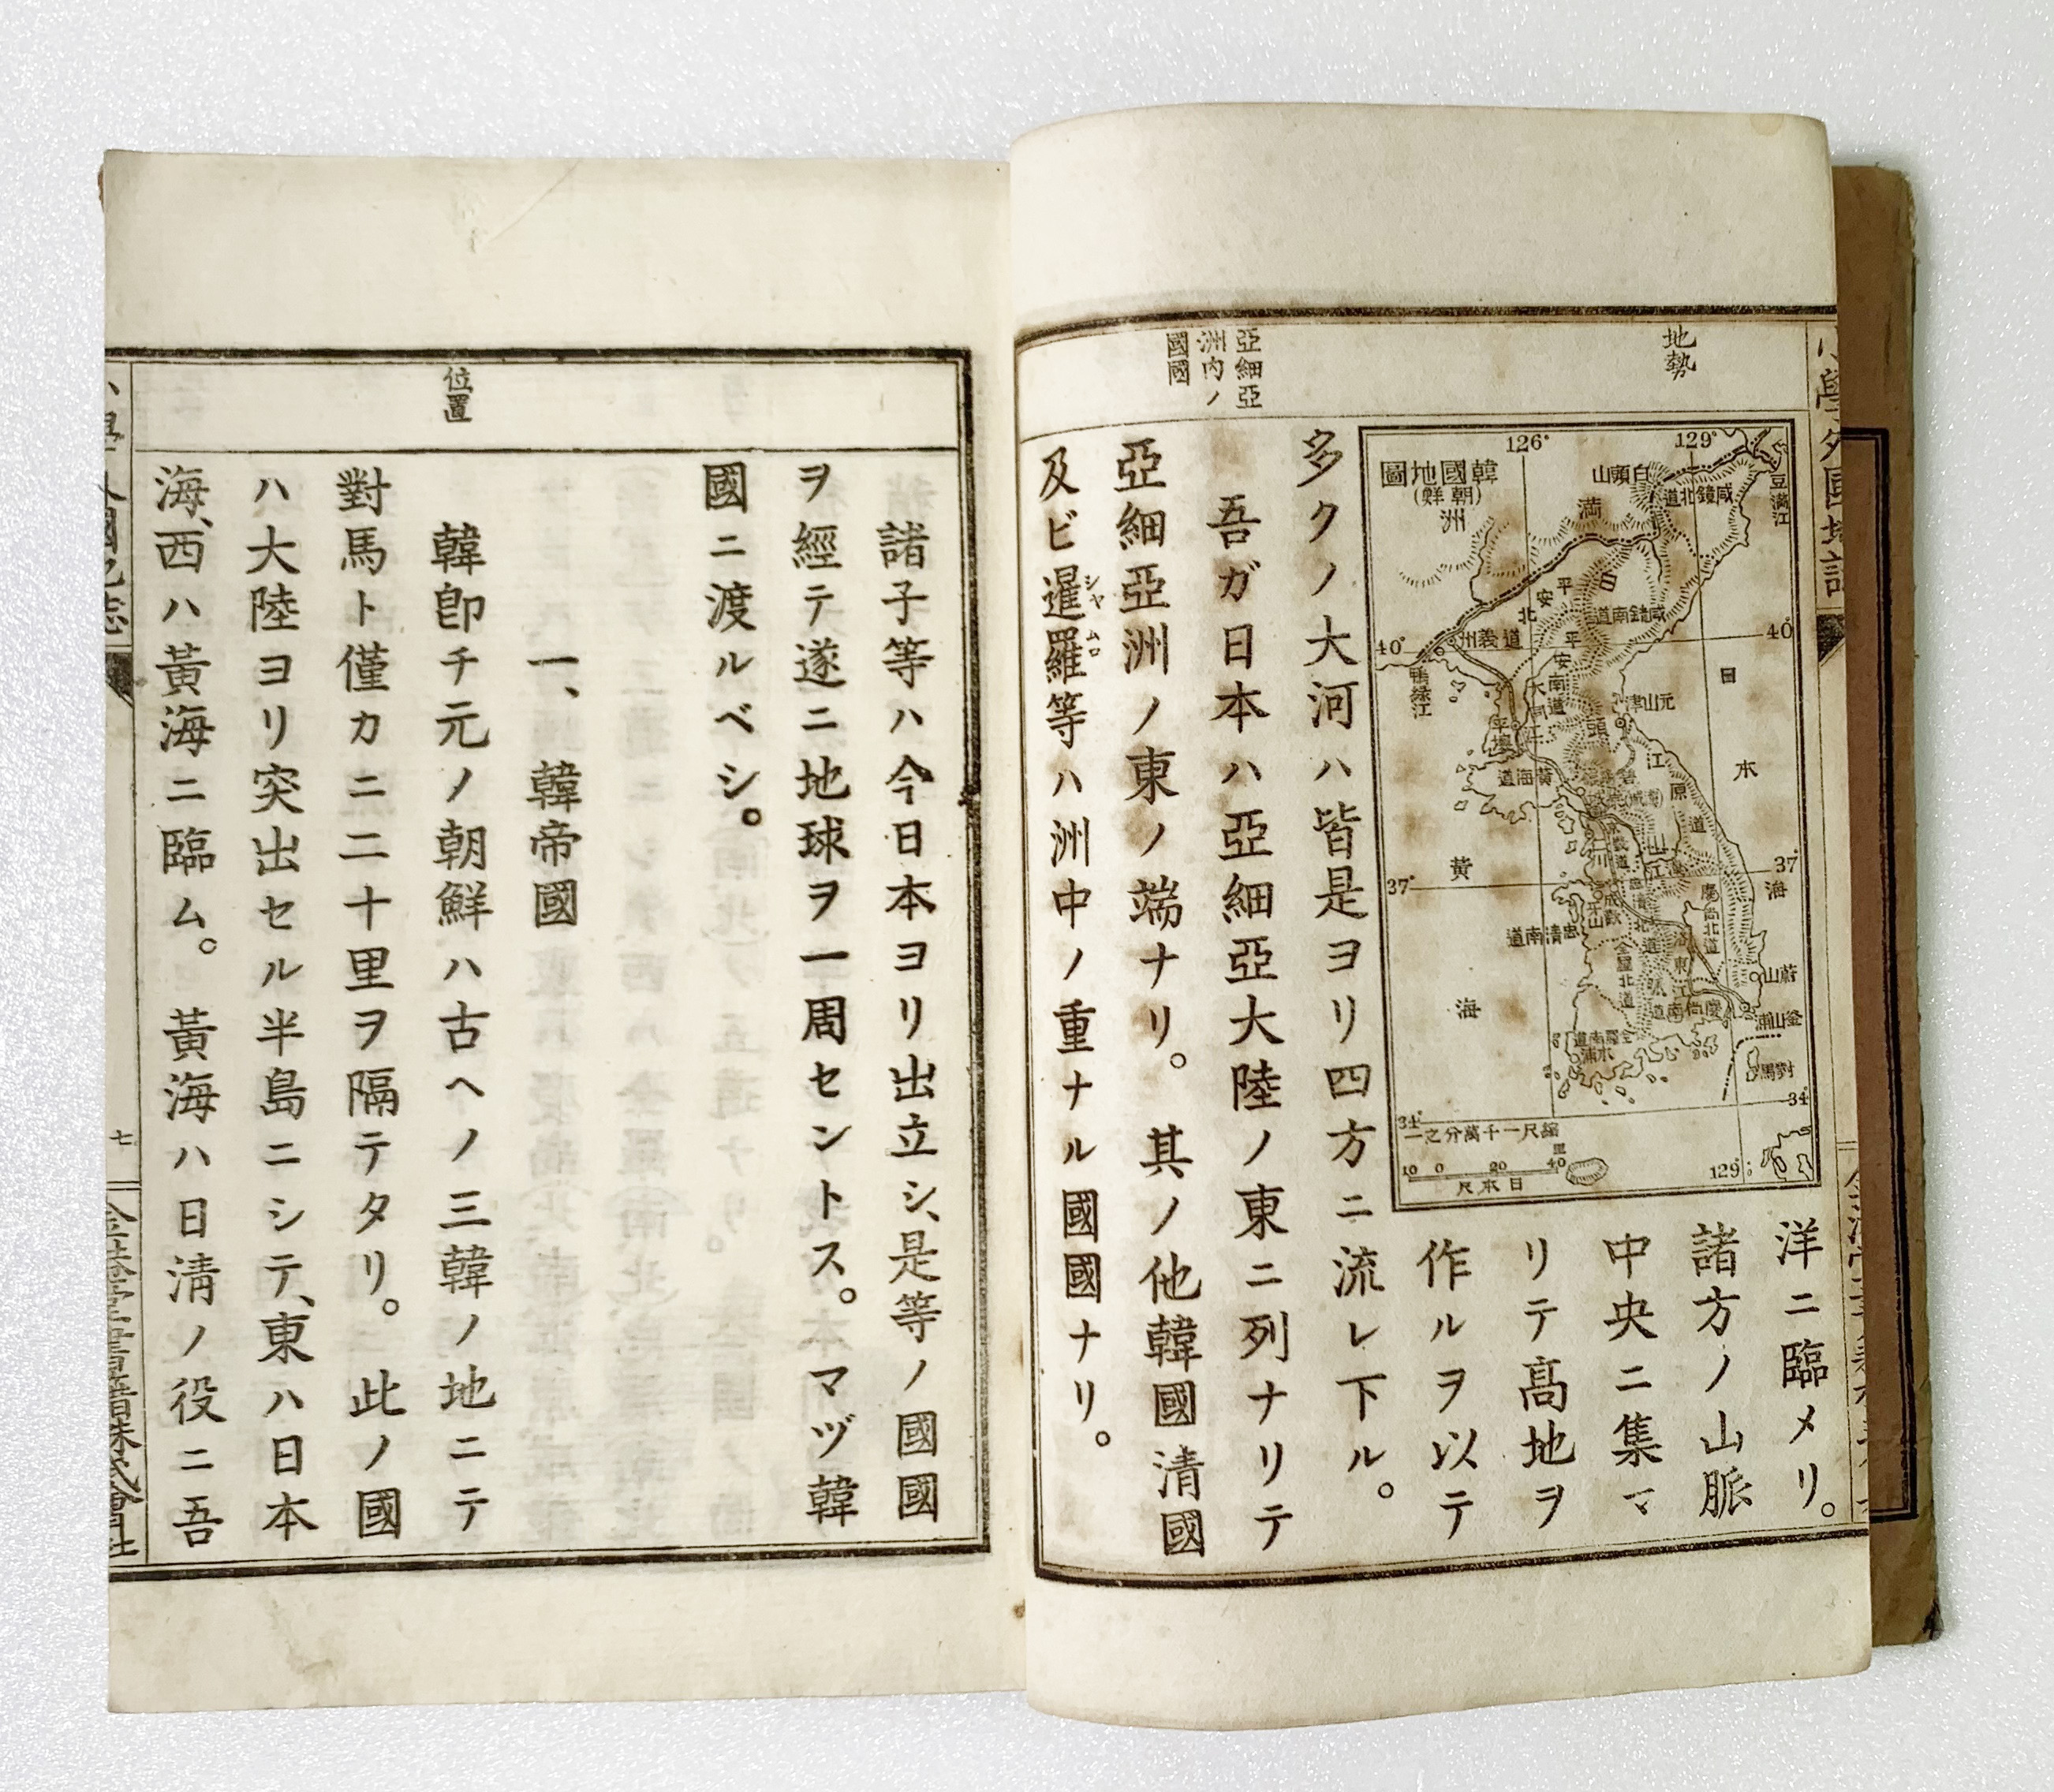 地勢
亞細亞
洲內ノ
國國
韓國地圖
(朝鮮)
126°
129°
白頭山
咸鏡北道
豆滿江
滿
洲
咸鏡南道
平
安
北
道
義州
40°
40°
鴨綠江
平
安
南
道
平壤
元山津
日
本
海
黃海道
江
原
道
37°
37°
黃
海
忠淸南道
慶尙北道
全羅北道
慶尙南道
全羅南道
木浦
蔚山
釜山浦
對馬
34°
34°
129°
縮尺一千萬分之一
里
10 0 20 40
日本尺
洋ニ臨メリ。
諸方ノ山脈
中央ニ集マ
リテ高地ヲ
作ルヲ以テ
多クノ大河ハ皆是ヨリ四方ニ流レ下ル。
吾ガ日本ハ亞細亞大陸ノ東ニ列ナリテ
亞細亞洲ノ東ノ端ナリ。其ノ他韓國淸國
及ビ暹羅等ハ洲中ノ重ナル國國ナリ。
シャムロ
諸子等ハ今日本ヨリ出立シ、是等ノ國國
ヲ經テ遂ニ地球ヲ一周セントス。マヅ韓
國ニ渡ルベシ。
一、韓帝國
位置
韓卽チ元ノ朝鮮ハ古ヘノ三韓ノ地ニテ
對馬ト僅カニ二十里ヲ隔テタリ。此ノ國
ハ大陸ヨリ突出セル半島ニシテ、東ハ日本
海、西ハ黃海ニ臨ム。黃海ハ日淸ノ役ニ吾
七